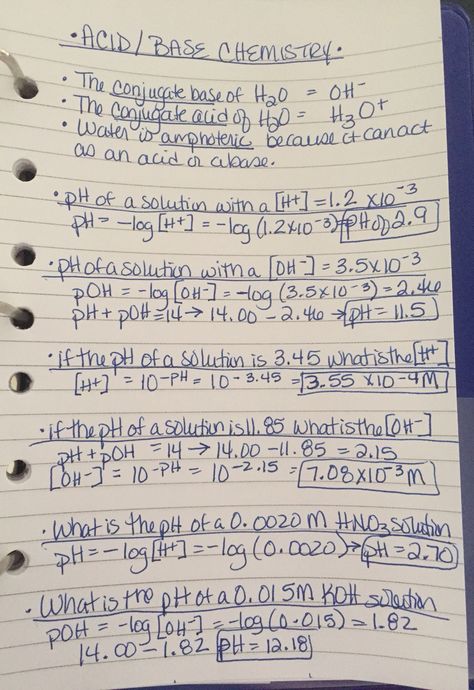 • ACID/BASE CHEMISTRY •
• The conjugate base of H₂O = OH⁻
• The conjugate acid of H₂O = H₃O⁺
• Water is amphoteric because it can act
as an acid or a base.
• pH of a solution with a [H+] = 1.2 x10⁻³
pH = -log [H+] = -log (1.2x10⁻³) = pH of 2.9
• pH of a solution with a [OH⁻] = 3.5x10⁻³
pOH = -log [OH⁻] = -log (3.5x10⁻³) = 2.46
pH + pOH = 14 → 14.00 - 2.46 → pH = 11.5
• if the pH of a solution is 3.45 what is the [H+]
[H+] = 10⁻ᵖᴴ = 10⁻³·⁴⁵ = 3.55 x10-4M
• if the pH of a solution is 11.85 what is the [OH⁻]
pH + pOH = 14 → 14.00 - 11.85 = 2.15
[OH⁻] = 10⁻ᵖᴴ = 10⁻²·¹⁵ = 7.08x10⁻³M
• What is the pH of a 0.0020 M HNO₃ solution
pH = -log [H+] = -log (0.0020) → pH = 2.70
• What is the pH of a 0.015M KOH solution
pOH = -log [OH⁻] = -log (0.015) = 1.82
14.00 - 1.82 pH = 12.18